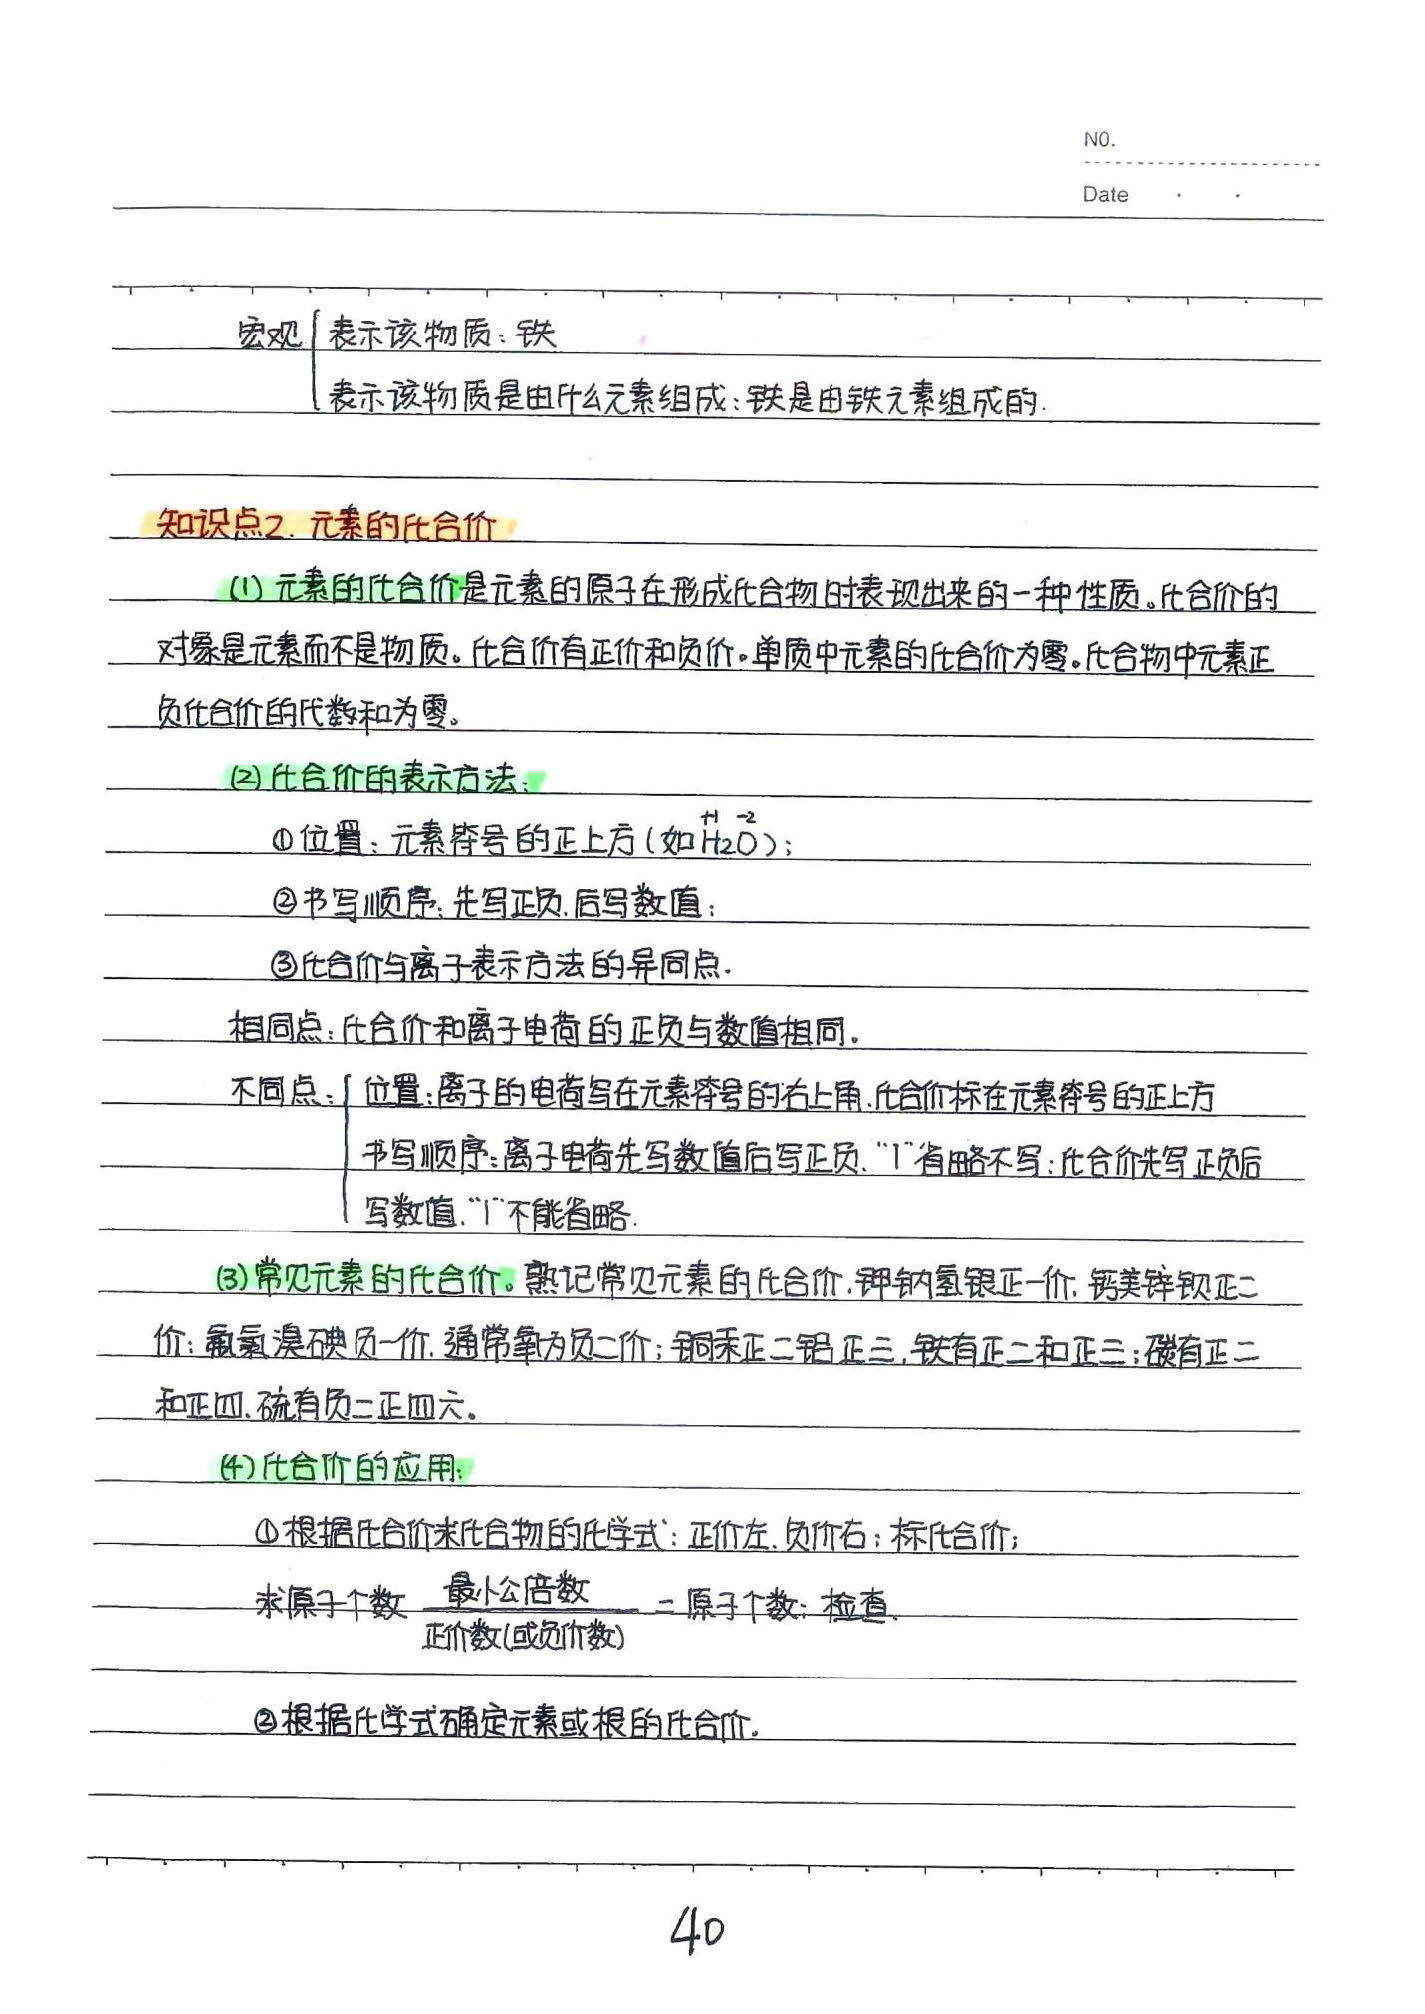 NO.
Date
宏观 { 表示该物质：铁
表示该物质是由什么元素组成：铁是由铁元素组成的.
知识点2. 元素的化合价
(1) 元素的化合价是元素的原子在形成化合物时表现出来的一种性质。化合价的
对象是元素而不是物质。化合价有正价和负价。单质中元素的化合价为零。化合物中元素正
负化合价的代数和为零。
(2) 化合价的表示方法：
+1 -2
①位置：元素符号的正上方（如H2O）；
②书写顺序：先写正负.后写数值；
③化合价与离子表示方法的异同点.
相同点：化合价和离子电荷的正负与数值相同。
不同点：{ 位置：离子的电荷写在元素符号的右上角.化合价标在元素符号的正上方
书写顺序：离子电荷先写数值后写正负、“1”省略不写；化合价先写正负后
写数值、“1”不能省略.
(3)常见元素的化合价。熟记常见元素的化合价.钾钠氢银正一价.钙美锌钡正二
价；氟氯溴碘负一价.通常氧为负二价；铜汞正二铝正三.铁有正二和正三；碳有正二
和正四.硫有负二正四六。
(4)化合价的应用：
①根据化合价求化合物的化学式：正价左.负价右；标化合价；
求原子个数 最小公倍数 = 原子个数；检查.
正价数(或负价数)
②根据化学式确定元素或根的化合价.
40